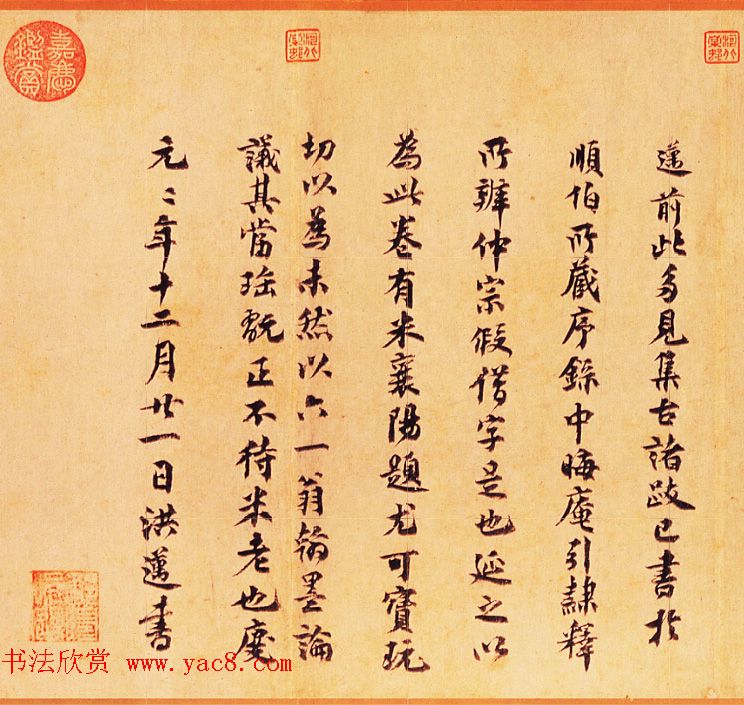 邁前此多見集古諸跋已書於
順伯所藏序錄中晦庵引隸釋
所辯仲宗假借字是也延之以
為此卷有米襄陽題尤可寶玩
切以為未然以六一翁翰墨論
議其當珤翫正不待米老也慶
元二年十二月廿一日洪邁書
嘉慶鑑賞
书法欣赏 www.yac8.com